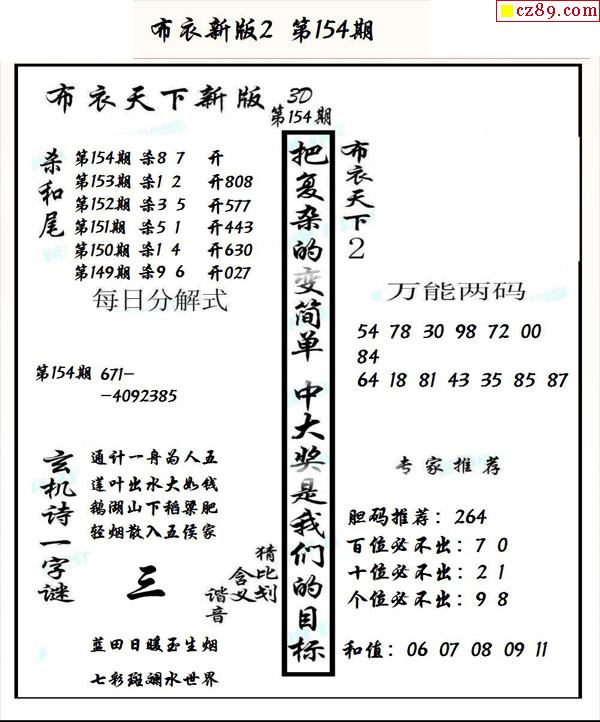 cz89.com
布衣新版2 第154期
布衣天下新版
3D
第154期
杀和尾
第154期 杀8 7 开
第153期 杀1 2 开808
第152期 杀3 5 开577
第151期 杀5 1 开443
第150期 杀1 4 开630
第149期 杀9 6 开027
每日分解式
第154期 671-
-4092385
玄机诗一字谜
通计一舟为人五
莲叶出水大如钱
鹅湖山下稻粱肥
轻烟散入五侯家
三
猜比划
含义
谐音
蓝田日暖玉生烟
七彩斑斓水世界
把复杂的变简单 中大奖是我们的目标
布衣天下2
万能两码
54 78 30 98 72 00
84
64 18 81 43 35 85 87
专家推荐
胆码推荐：264
百位必不出：7 0
十位必不出：2 1
个位必不出：9 8
和值：06 07 08 09 11